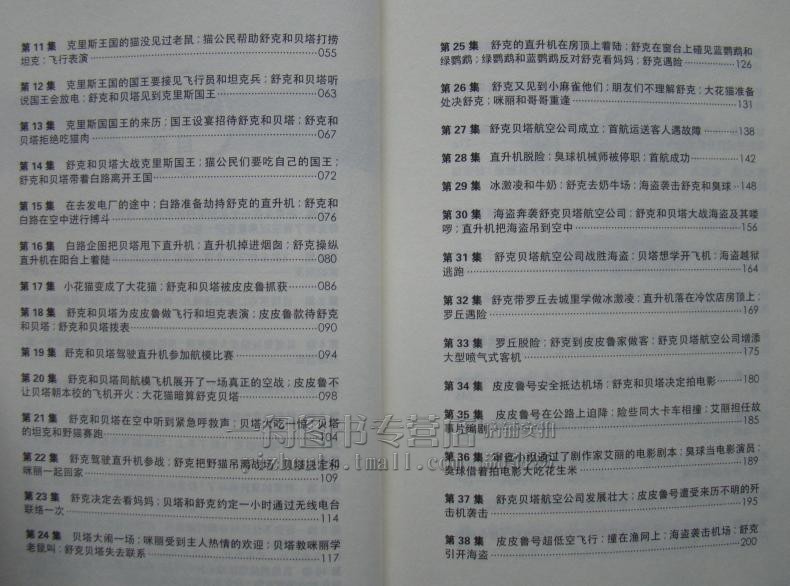 第 11 集 克里斯王国的猫没见过老鼠；猫公民帮助舒克和贝塔打捞
坦克；飞行表演 055
第 12 集 克里斯王国的国王要接见飞行员和坦克兵；舒克和贝塔听
说国王会放电；舒克和贝塔见到克里斯国王 063
第 13 集 克里斯国国王的来历；国王设宴招待舒克和贝塔；舒克和
贝塔拒绝吃猫肉 067
第 14 集 舒克和贝塔大战克里斯国王；猫公民们要吃自己的国王；
舒克和贝塔带着白路离开王国 072
第 15 集 在去发电厂的途中；白路准备劫持舒克的直升机；舒克和
白路在空中进行搏斗 076
第 16 集 白路企图把贝塔甩下直升机；直升机掉进烟囱；舒克操纵
直升机在阳台上着陆 080
第 17 集 小花猫变成了大花猫；舒克和贝塔被皮皮鲁抓获 086
第 18 集 舒克和贝塔为皮皮鲁做飞行和坦克表演；皮皮鲁款待舒克
和贝塔；舒克和贝塔拨表 090
第 19 集 舒克和贝塔驾驶直升机参加航模比赛 094
第 20 集 舒克和贝塔同航模飞机展开了一场真正的空战；皮皮鲁不
让贝塔朝本校的飞机开火；大花猫暗算舒克贝塔 098
第 21 集 舒克和贝塔在空中听到紧急呼救声；贝塔大吃一惊；贝塔
的坦克和野猫赛跑 104
第 22 集 舒克驾驶直升机参战；舒克把野猫吊离战场；贝塔决定和
咪丽一起回家 109
第 23 集 舒克决定去看妈妈；贝塔和舒克约定一小时通过无线电台
联络一次 114
第 24 集 贝塔大闹一场；咪丽受到主人热情的欢迎；贝塔教咪丽学
老鼠叫；舒克贝塔失去联系 117
第 25 集 舒克的直升机在房顶上着陆；舒克在窗台上碰见蓝鹦鹉和
绿鹦鹉；绿鹦鹉和蓝鹦鹉反对舒克看妈妈；舒克遇险 126
第 26 集 舒克又见到小麻雀他们；朋友们不理解舒克；大花猫准备
处决舒克；咪丽和哥哥重逢 131
第 27 集 舒克贝塔航空公司成立；首航运送客人遇故障 138
第 28 集 直升机脱险；臭球机械师被停职；首航成功 142
第 29 集 冰激凌和牛奶；舒克去奶牛场；海盗袭击舒克和臭球 148
第 30 集 海盗奔袭舒克贝塔航空公司；舒克和贝塔大战海盗及其喽
啰；直升机把海盗吊到空中 156
第 31 集 舒克贝塔航空公司战胜海盗；贝塔想学开飞机；海盗越狱
逃跑 164
第 32 集 舒克带罗丘去城里学做冰激凌；直升机落在冷饮店房顶上；
罗丘遇险 169
第 33 集 罗丘脱险；舒克到皮皮鲁家做客；舒克贝塔航空公司增添
大型喷气式客机 175
第 34 集 皮皮鲁号安全抵达机场；舒克和贝塔决定拍电影 180
第 35 集 皮皮鲁号在公路上迫降；险些同大卡车相撞；艾丽担任故
事片编剧 185
第 36 集 审查小组通过了剧作家艾丽的电影剧本；臭球当电影演员；
臭球借着拍电影大吃花生米 189
第 37 集 舒克贝塔航空公司发展壮大；皮皮鲁号遭受来历不明的歼
击机袭击 195
第 38 集 皮皮鲁号超低空飞行；撞在渔网上；海盗袭击机场；舒克
引开海盗 200